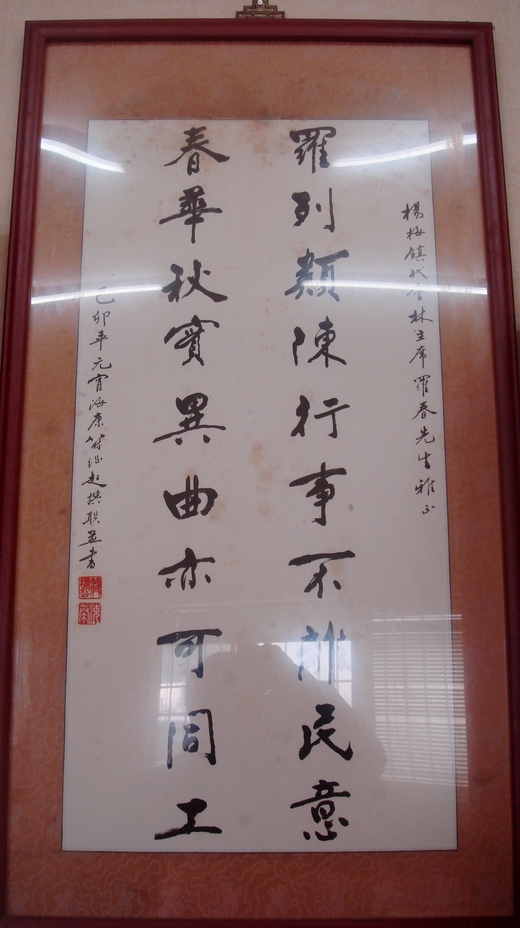 楊梅鎮代會林主席羅春先生雅正
羅列類陳行事不誹民意
春華秋實異曲亦可同工
己卯年元宵海康撰联並書